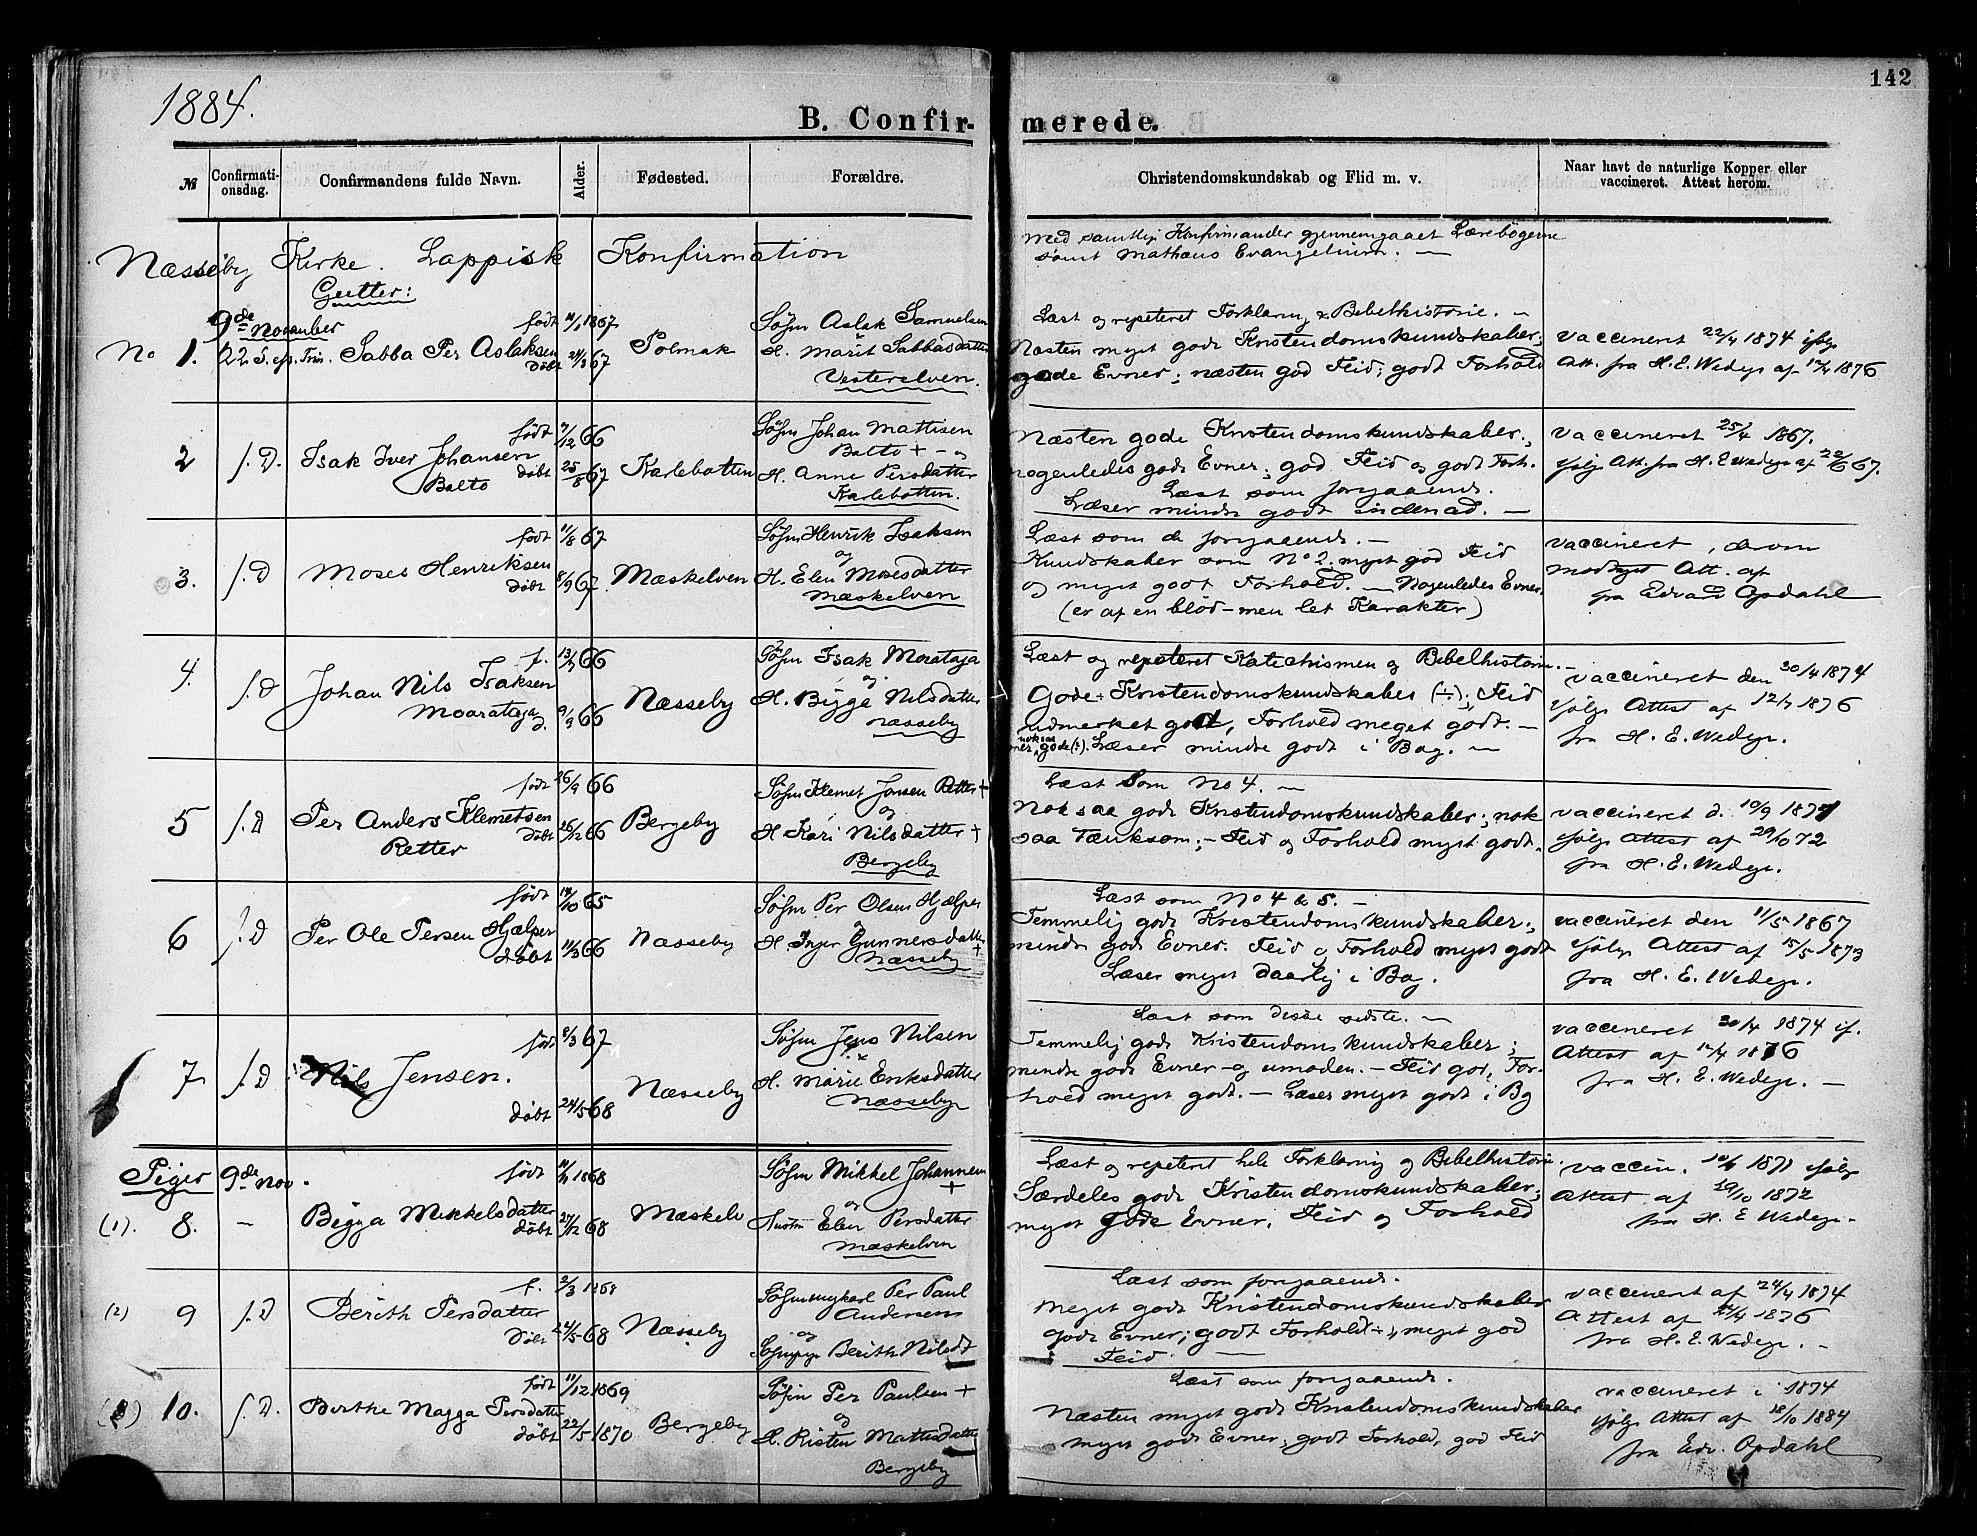 142
1884.
B. Confir-merede.
№
Confirmati-
onsdag.
Confirmandens fulde Navn.
Alder.
Fødested.
Forældre.
Christendomskundskab og Flid m. v.
Naar havt de naturlige Kopper eller
vaccineret. Attest herom.
Næsseby Kirke. Lappisk Konfirmation
Gutter:
Med samtlige Konfirmander gjennemgaaet Lærebøgerne
samt Mathæus Evangelium. —
9de November
No 1. 22 S. ef. Trin.
født 1867
Sabba Per Aslaksen
døbt 67
Polmak
Søfin Aslak Samuelsen
H. Marit Sabbasdatter
Vesterelven.
Læst og repeteret Forklaring & Bibelhistorie. —
Næsten myet gode Kristendomskundskaber;
gode Evner; næsten god Flid; godt Forhold
vaccineret 22/4 1874 ifølge
Att. fra H. E. Wedege af 12/4 1876
2 s. D.
født 9/12 66
Isak Iver Johansen
Balto døbt 25/8 67
Karlebotten
Søfin Johan Mattisen
Balto + – og
H. Anne Persdatter
Karlebotten.
Næsten gode Kristendomskundskaber;
nogenledes gode Evner; god Flid og godt Forh.
Læst som forgaaende.
Læser mindre godt indenad. —
vaccineret 25/4 1867.
ifølge Att. fra H. E. Wedege af 22/6 67.
3. s. D
født 11/8 67
Moses Henriksen
døbt 8/9 67.
Mæskelven
Søfin Henrik Isaksen
og
H. Elen Mosesdatter
Mæskelven
Læst som de forgaaende. —
Kundskaber som No 2. myet god Flid
og myet godt Forhold. — Nogenledes Evner.
(er af en blød – men let Karakter)
vaccineret, derom
Att. af
fra Edvard Opdahl
4. s. D
f. 66
Johan Nils Isaksen
Moarataja
d. 9/9 66
Næsseby
Søfin Isak Morataja
og
H. Bigga Nilsdatter
Næsseby
Læst og repeteret Katechismen og Bibelhistorie. —
Gode Kristendomskundskaber (÷); Flid
udmerket godt, Forhold meget godt. —
nok saa gode (÷). Læser mindre godt i Bog. —
vaccineret den 30/4 1874
ifølge Attest af 12/4 1876
fra H. E. Wedege.
5 s. D
født 26/9 66
Per Anders Klemetsen
Retter døbt 26/12 66
Bergeby
Søfin Klemet Jonsen Retter +
og
H Kari Nilsdatter +
Bergeby
Læst som No 4. —
Nok saa gode Kristendomskundskaber; nok
saa Tænksom; – Flid og Forhold myet godt.
vaccineret d. 10/9 1871
ifølge Attest af 29/10 72
fra H. E. Wedege.
6 s. D
født 65
Per Ole Persen Hjælper
døbt 11/3 66
Næsseby
Søfin Per Olsen Hjælper
H Inger Gunnersdatter +
Næsseby
Læst som No 4 & 5. —
Temmelig gode Kristendomskundskaber;
mindre gode Evner. Flid og Forhold myet godt
Læser myet daarlig i Bog.
vaccineret den 11/5 1867
ifølge Attest af 15/5 1873
fra H. E. Wedege.
7 s. D
født 8/3 67
Nils Jensen.
døbt 24/5 68
Næsseby
Søfin Jens Nilsen
H. Marie Eriksdatter
Næsseby
Læst som disse sidste. —
Temmelig gode Kristendomskundskaber;
mindre gode Evner – og umoden. – Flid god, For-
hold meget godt. – Læser myet godt i Bog
vaccineret 30/4 1874 if.
Attest af 12/4 1876
fra H. E. Wedege. —
Piger 9de Nov.
født 1868
(1). 8. —
Bigga Mikkelsdatter
døbt 27/12 68
Mæskelv
Søfin Mikkel Johannesen +
og
Hustru Elen Persdatter
Mæskelven
Læst og repeteret hele Forklaring og Bibelhistorie.
Særdeles gode Kristendomskundskaber;
myet gode Evner. Flid og Forhold
vaccin. 1871 ifølge
Attest af 29/10 1872
fra H. E Wedege. –
(2) 9 s. D
f. 2/3 1868
Berith Persdatter
døbt 24/5 68
Næsseby
Per Paul
Andersens
og
Berith Nilsdt
Læst som forgaaende.
Meget gode Kristendomskundskaber
gode Evner; godt Forhold ÷, meget god
Flid.
vaccineret af 24/4 1874
Attest af 12/4 1876
fra H. E. Wedege. —
(3) 10. s. D.
født 11/12 1869
Birthe Magga Persdatter
døbt 22/5 1870
Bergeby
Søfin Per Paulsen +
og
H. Risten Mattisdatter
Bergeby
Læst som forgaaende.
Næsten myet gode Kristendomskundskaber
myet gode Evner; godt Forhold, god Flid
vaccineret i 1874
ifølge Attest af 18/10 1884
fra Edv. Opdahl